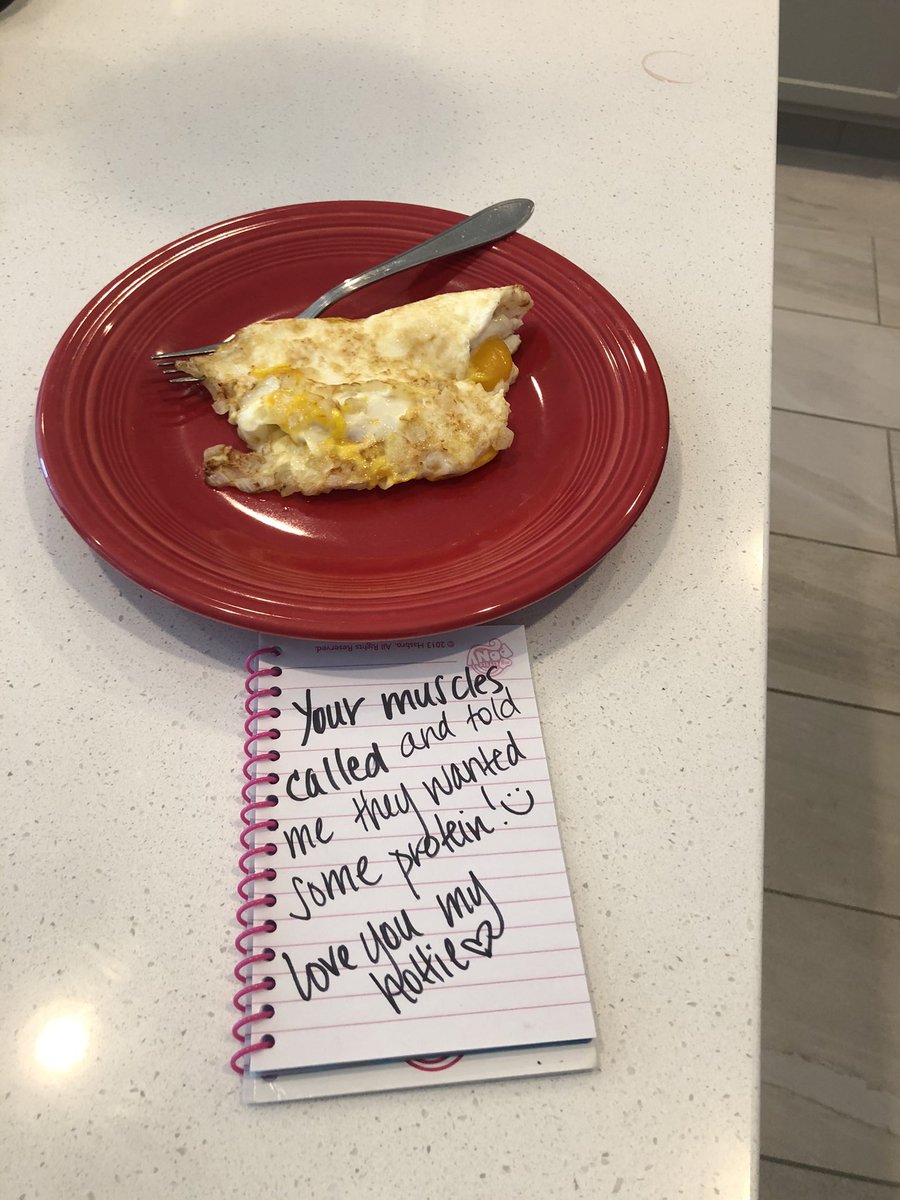 © 2013 Hasbro. All Rights Reserved.
Your muscles
called and told
me they wanted
some protein!
Love you my
Hottie